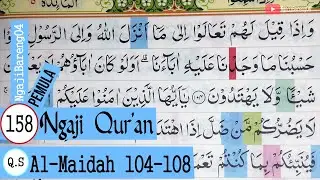 وَإِذَا قِيلَ لَهُمْ تَعَالَوْا إِلَى مَا أَنْزَلَ اللَّهُ وَإِلَى الرَّسُولِ
حَسْبُنَا مَا وَجَدْنَا عَلَيْهِ آبَاءَنَا ۚ أَوَلَوْ كَانَ آبَاؤُهُمْ لَا يَعْلَمُونَ
شَيْئًا وَلَا يَهْتَدُونَ ١٠٤ يَا أَيُّهَا الَّذِينَ آمَنُوا عَلَيْكُمْ
لَا يَضُرُّكُمْ مَنْ ضَلَّ إِذَا
فَيُنَبِّئُكُمْ بِمَا كُنْتُمْ
NgajiBareng04
PEMULA
158 Ngaji Qur'an
Q.S Al-Maidah 104-108